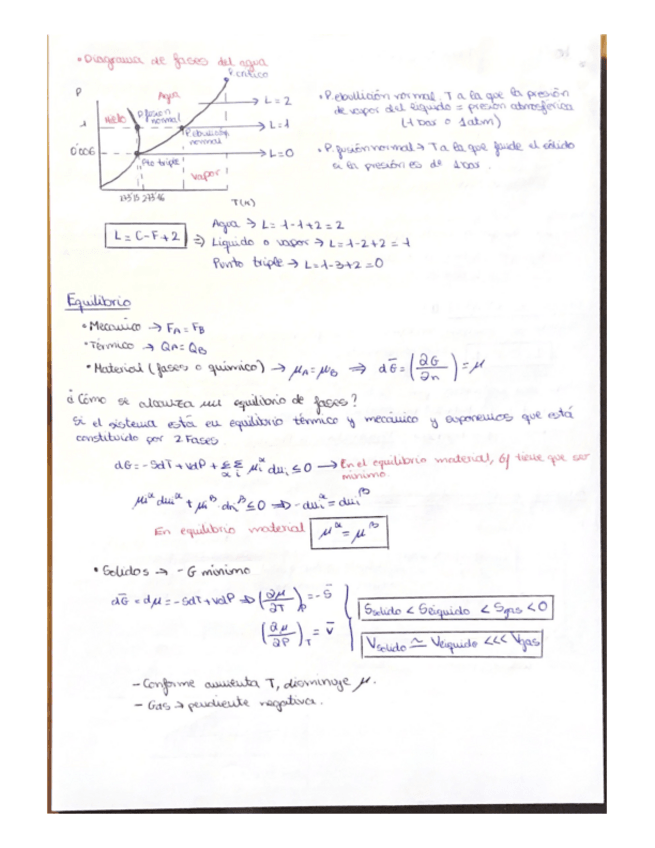 • Diagrama de fases del agua
P. crítico
P
Agua
L = 2
1
Hielo
P. fusión normal
L = 1
P. ebullición normal
0'006
L = 0
Pto triple
Vapor
273'15 273'16
T(K)
• P. ebullición normal. T a la que la presión
de vapor del líquido = presión atmosférica
(1 bar o 1 atm)
• P. fusión normal → T a la que funde el sólido
si la presión es de 1 bar.
L = C - F + 2 ⇒
Agua → L = 1 - 1 + 2 = 2
Líquido o vapor → L = 1 - 2 + 2 = 1
Punto triple → L = 1 - 3 + 2 = 0
Equilibrio
• Mecánico → FA = FB
• Térmico → QA = QB
• Material (fases o químico) → μA = μB ⇒ dG̅ = (∂G/∂n) = μ
¿Cómo se alcanza un equilibrio de fases?
Si el sistema está en equilibrio térmico y mecánico y suponemos que está
constituido por 2 Fases.
dG = -SdT + VdP + Σα Σi μiα dni ≤ 0 → En el equilibrio material, G tiene que ser
mínimo.
μiα dniα + μiβ · dniβ ≤ 0 ⇒ -dniα = dniβ
En equilibrio material μα = μβ
• Sólidos → - G mínimo
dG̅ = dμ = -SdT + VdP ⇒ (∂μ/∂T)P = -S̅
Ssólido < Slíquido < Sgas < 0
(∂μ/∂P)T = V̅
Vsólido ≃ Vlíquido <<< Vgas
- Conforme aumenta T, disminuye μ.
- Gas → pendiente negativa.